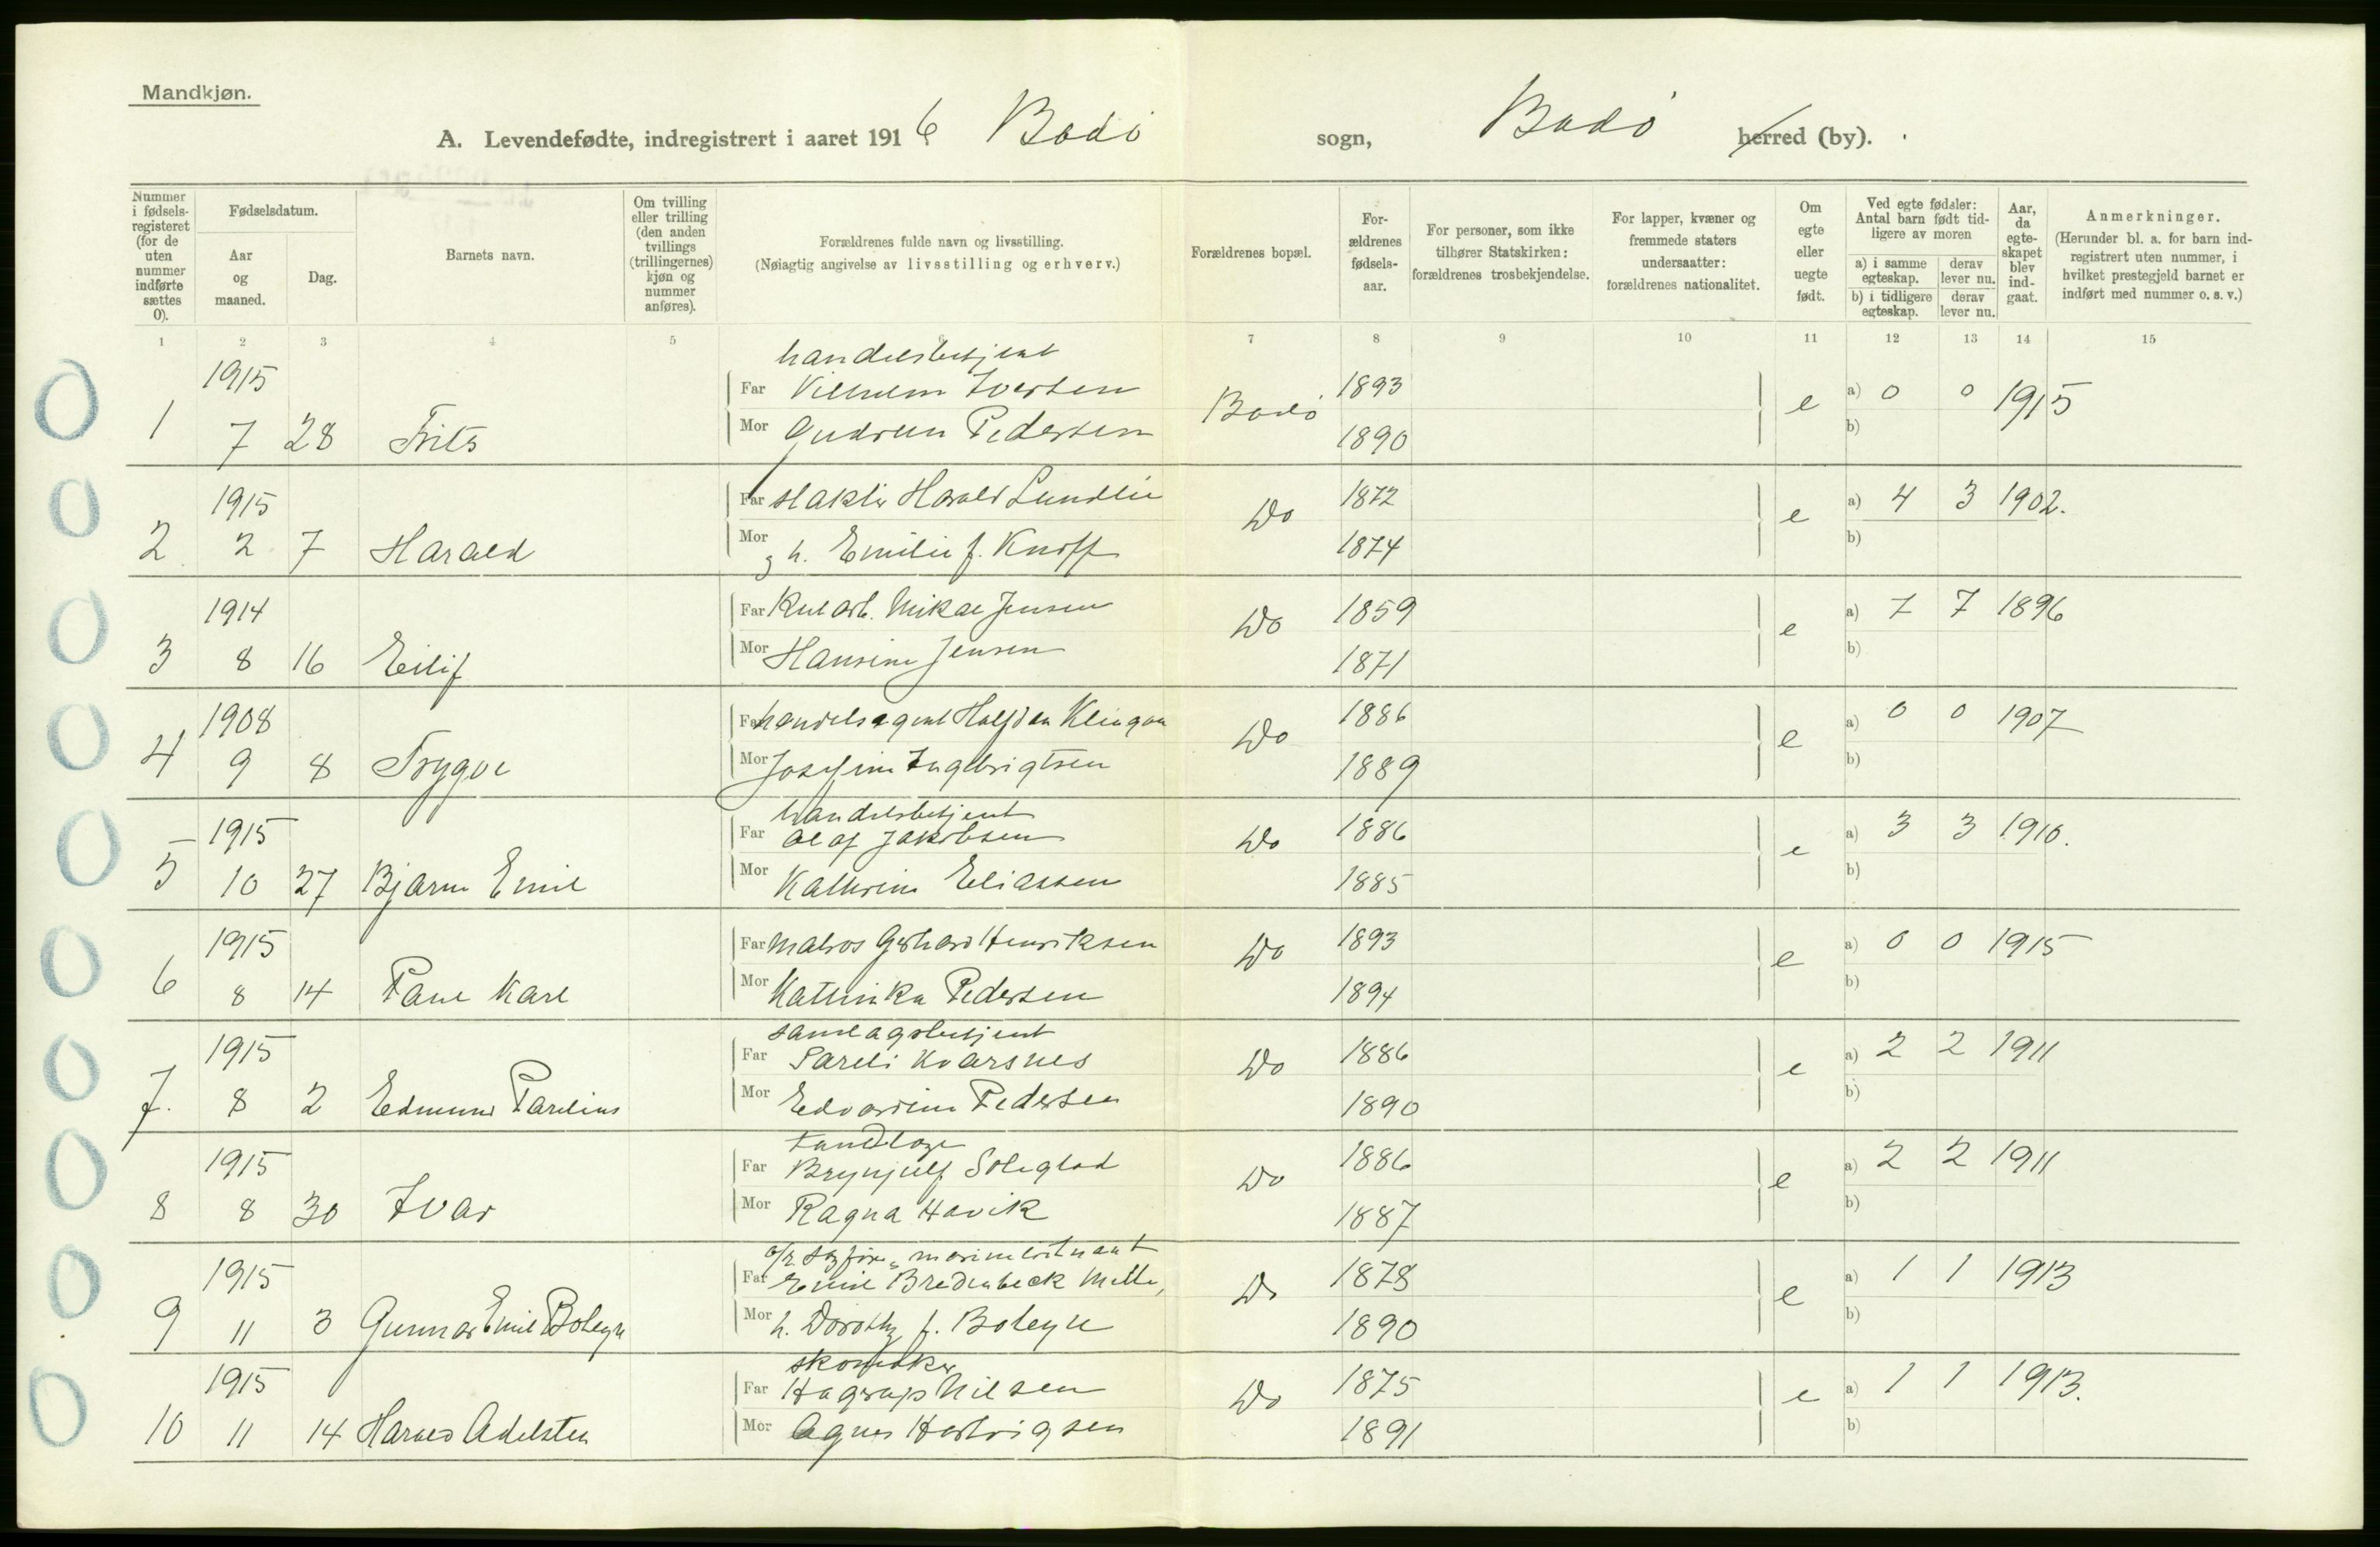 Mandkjøn.
A. Levendefødte, indregistrert i aaret 1916 Bodø sogn, Bodø herred (by).
Nummer i fødselsregisteret (for de uten nummer indførte sættes 0).
Fødselsdatum.
Aar og maaned.
Dag.
Barnets navn.
Om tvilling eller trilling (den anden tvillings (trillingernes) kjøn og nummer anføres).
Forældrenes fulde navn og livsstilling.
(Nøiagtig angivelse av livsstilling og erhverv.)
Forældrenes bopæl.
Forældrenes fødselsaar.
For personer, som ikke tilhører Statskirken: forældrenes trosbekjendelse.
For lapper, kvæner og fremmede staters undersaatter: forældrenes nationalitet.
Om egte eller uegte født.
Ved egte fødsler: Antal barn født tidligere av moren
a) i samme egteskap. derav lever nu.
b) i tidligere egteskap. derav lever nu.
Aar, da egteskapet blev indgaat.
Anmerkninger.
(Herunder bl. a. for barn indregistrert uten nummer, i hvilket prestegjeld barnet er indført med nummer o. s. v.)
1 2 3 4 5 6 7 8 9 10 11 12 13 14 15
handelsbetjent
1915 Far Vilhelm Iversen 1893 a) 0 0 1915
1 7 28 Frits Mor Gudrun Pedersen Bodø 1890 e b)
1915 Far Makler Harald Lundlie 1872 a) 4 3 1902.
2 2 7 Harald Mor h. Emilie f. Knoff Do 1874 e b)
1914 Far Kularb. Mikal Jensen 1859 a) 7 7 1896
3 8 16 Eilif Mor Hansine Jensen Do 1871 e b)
1908 Far handelsagent Halfdan Klingan 1886 a) 0 0 1907
4 9 8 Trygve Mor Josefine Ingebrigtsen Do 1889 e b)
handelsbetjent
1915 Far Olaf Jakobsen 1886 a) 3 3 1910.
5 10 27 Bjarne Emil Mor Kathrine Eliassen Do 1885 e b)
1915 Far Matros Gerhard Henriksen 1893 a) 0 0 1915
6 8 14 Paul Karl Mor Kathinka Pedersen Do 1894 e b)
samlagsbetjent
1915 Far Pareli Kvarsnes 1886 a) 2 2 1911
7. 8 2 Edmund Parelius Mor Edvardine Pedersen Do 1890 e b)
Tandlæge
1915 Far Brynjulf Soleglad 1886 a) 2 2 1911
8 8 30 Ivar Mor Ragna Havik Do 1887 e b)
1915 Far Emil Bredenbeck Melle, 1878 a) 1 1 1913
9 11 3 Gunnar Emil Boleyn Mor h. Dorothy f. Boleyn Do 1890 e b)
skomaker
1915 Far Hagerup Nilsen 1875 a) 1 1 1913.
10 11 14 Harald Adelsten Mor Agnes Hartvigsen Do 1891 e b)